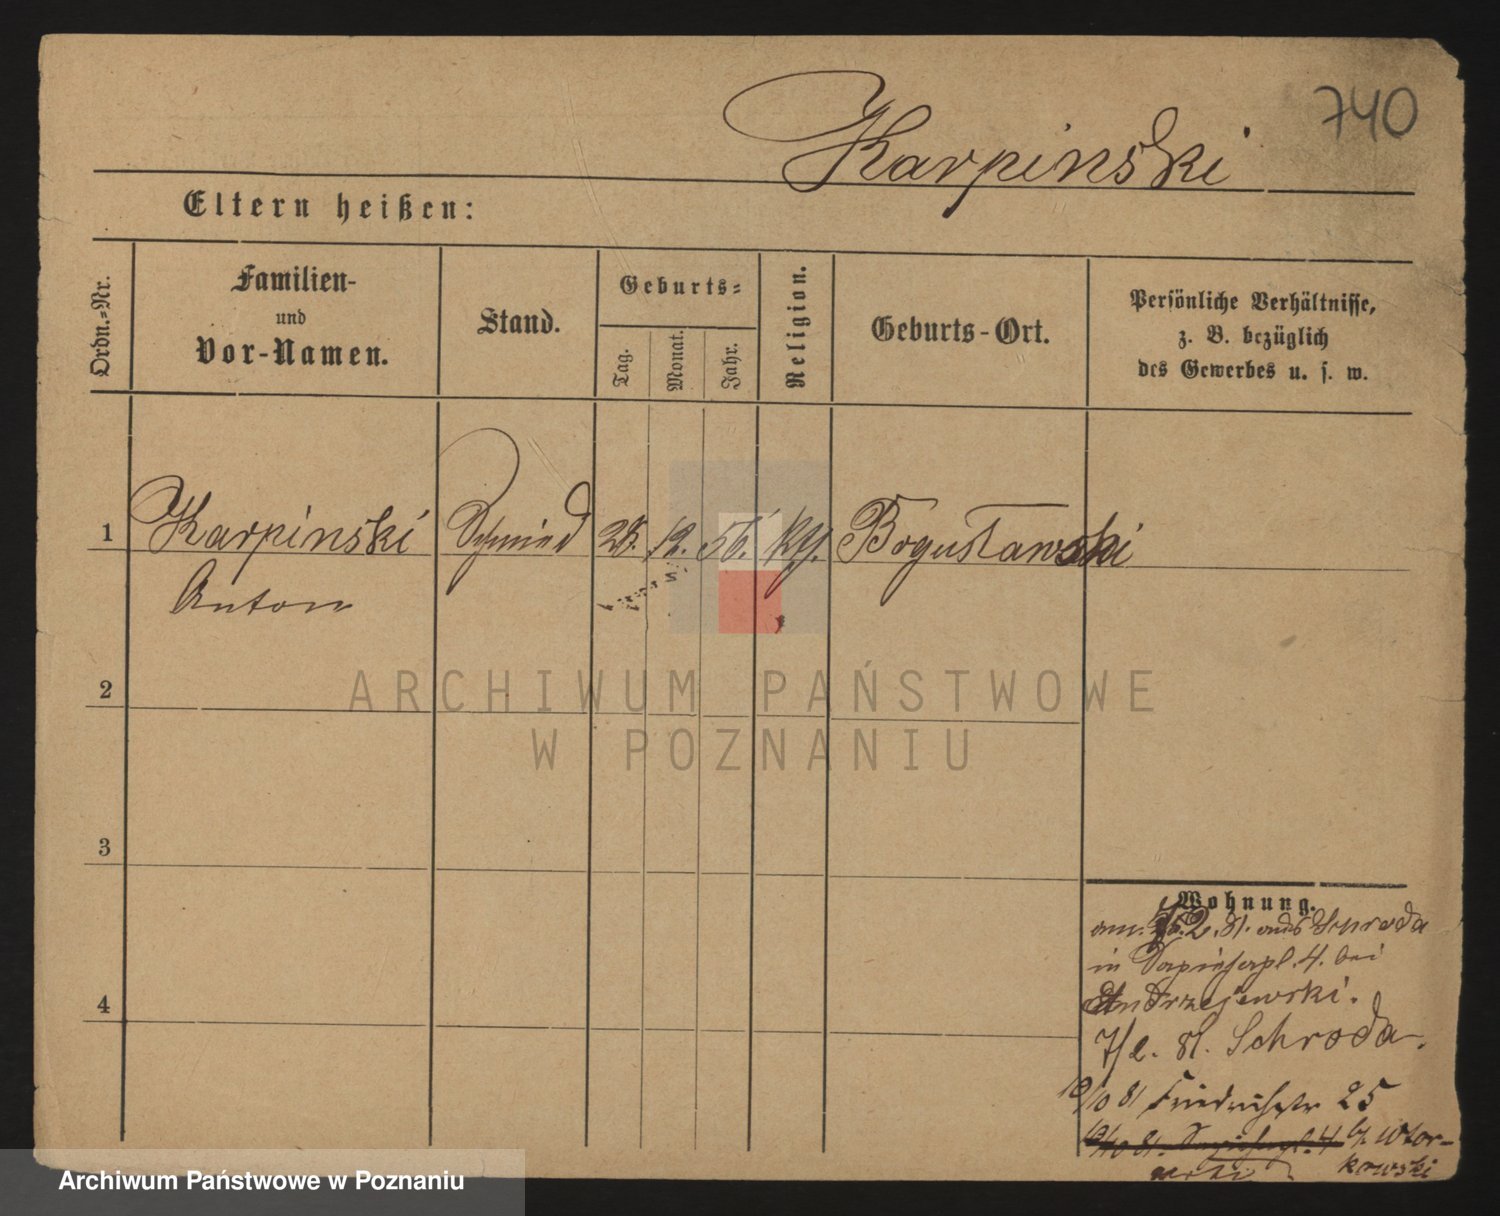 740
Karpinski
Eltern heißen:
Ordn.=Nr.
Familien-
und
Vor-Namen.
Stand.
Geburts=
Tag.
Monat.
Jahr.
Religion.
Geburts-Ort.
Persönliche Verhältnisse,
z. B. bezüglich
des Gewerbes u. s. w.
1 Karpinski Schmied 12. 56. Bogusławski
Anton
ARCHIWUM PAŃSTWOWE
W POZNANIU
2
3
4
Wohnung.
2. 81. aus Schroda
in Sapiehapl. 4. bei
Andrzejewski.
7/2. 81. Schroda.
10/10 81 Friedrichstr 25
10/10 81. Sapiehapl. 4 b/ Wtor-
kowski
Archiwum Państwowe w Poznaniu